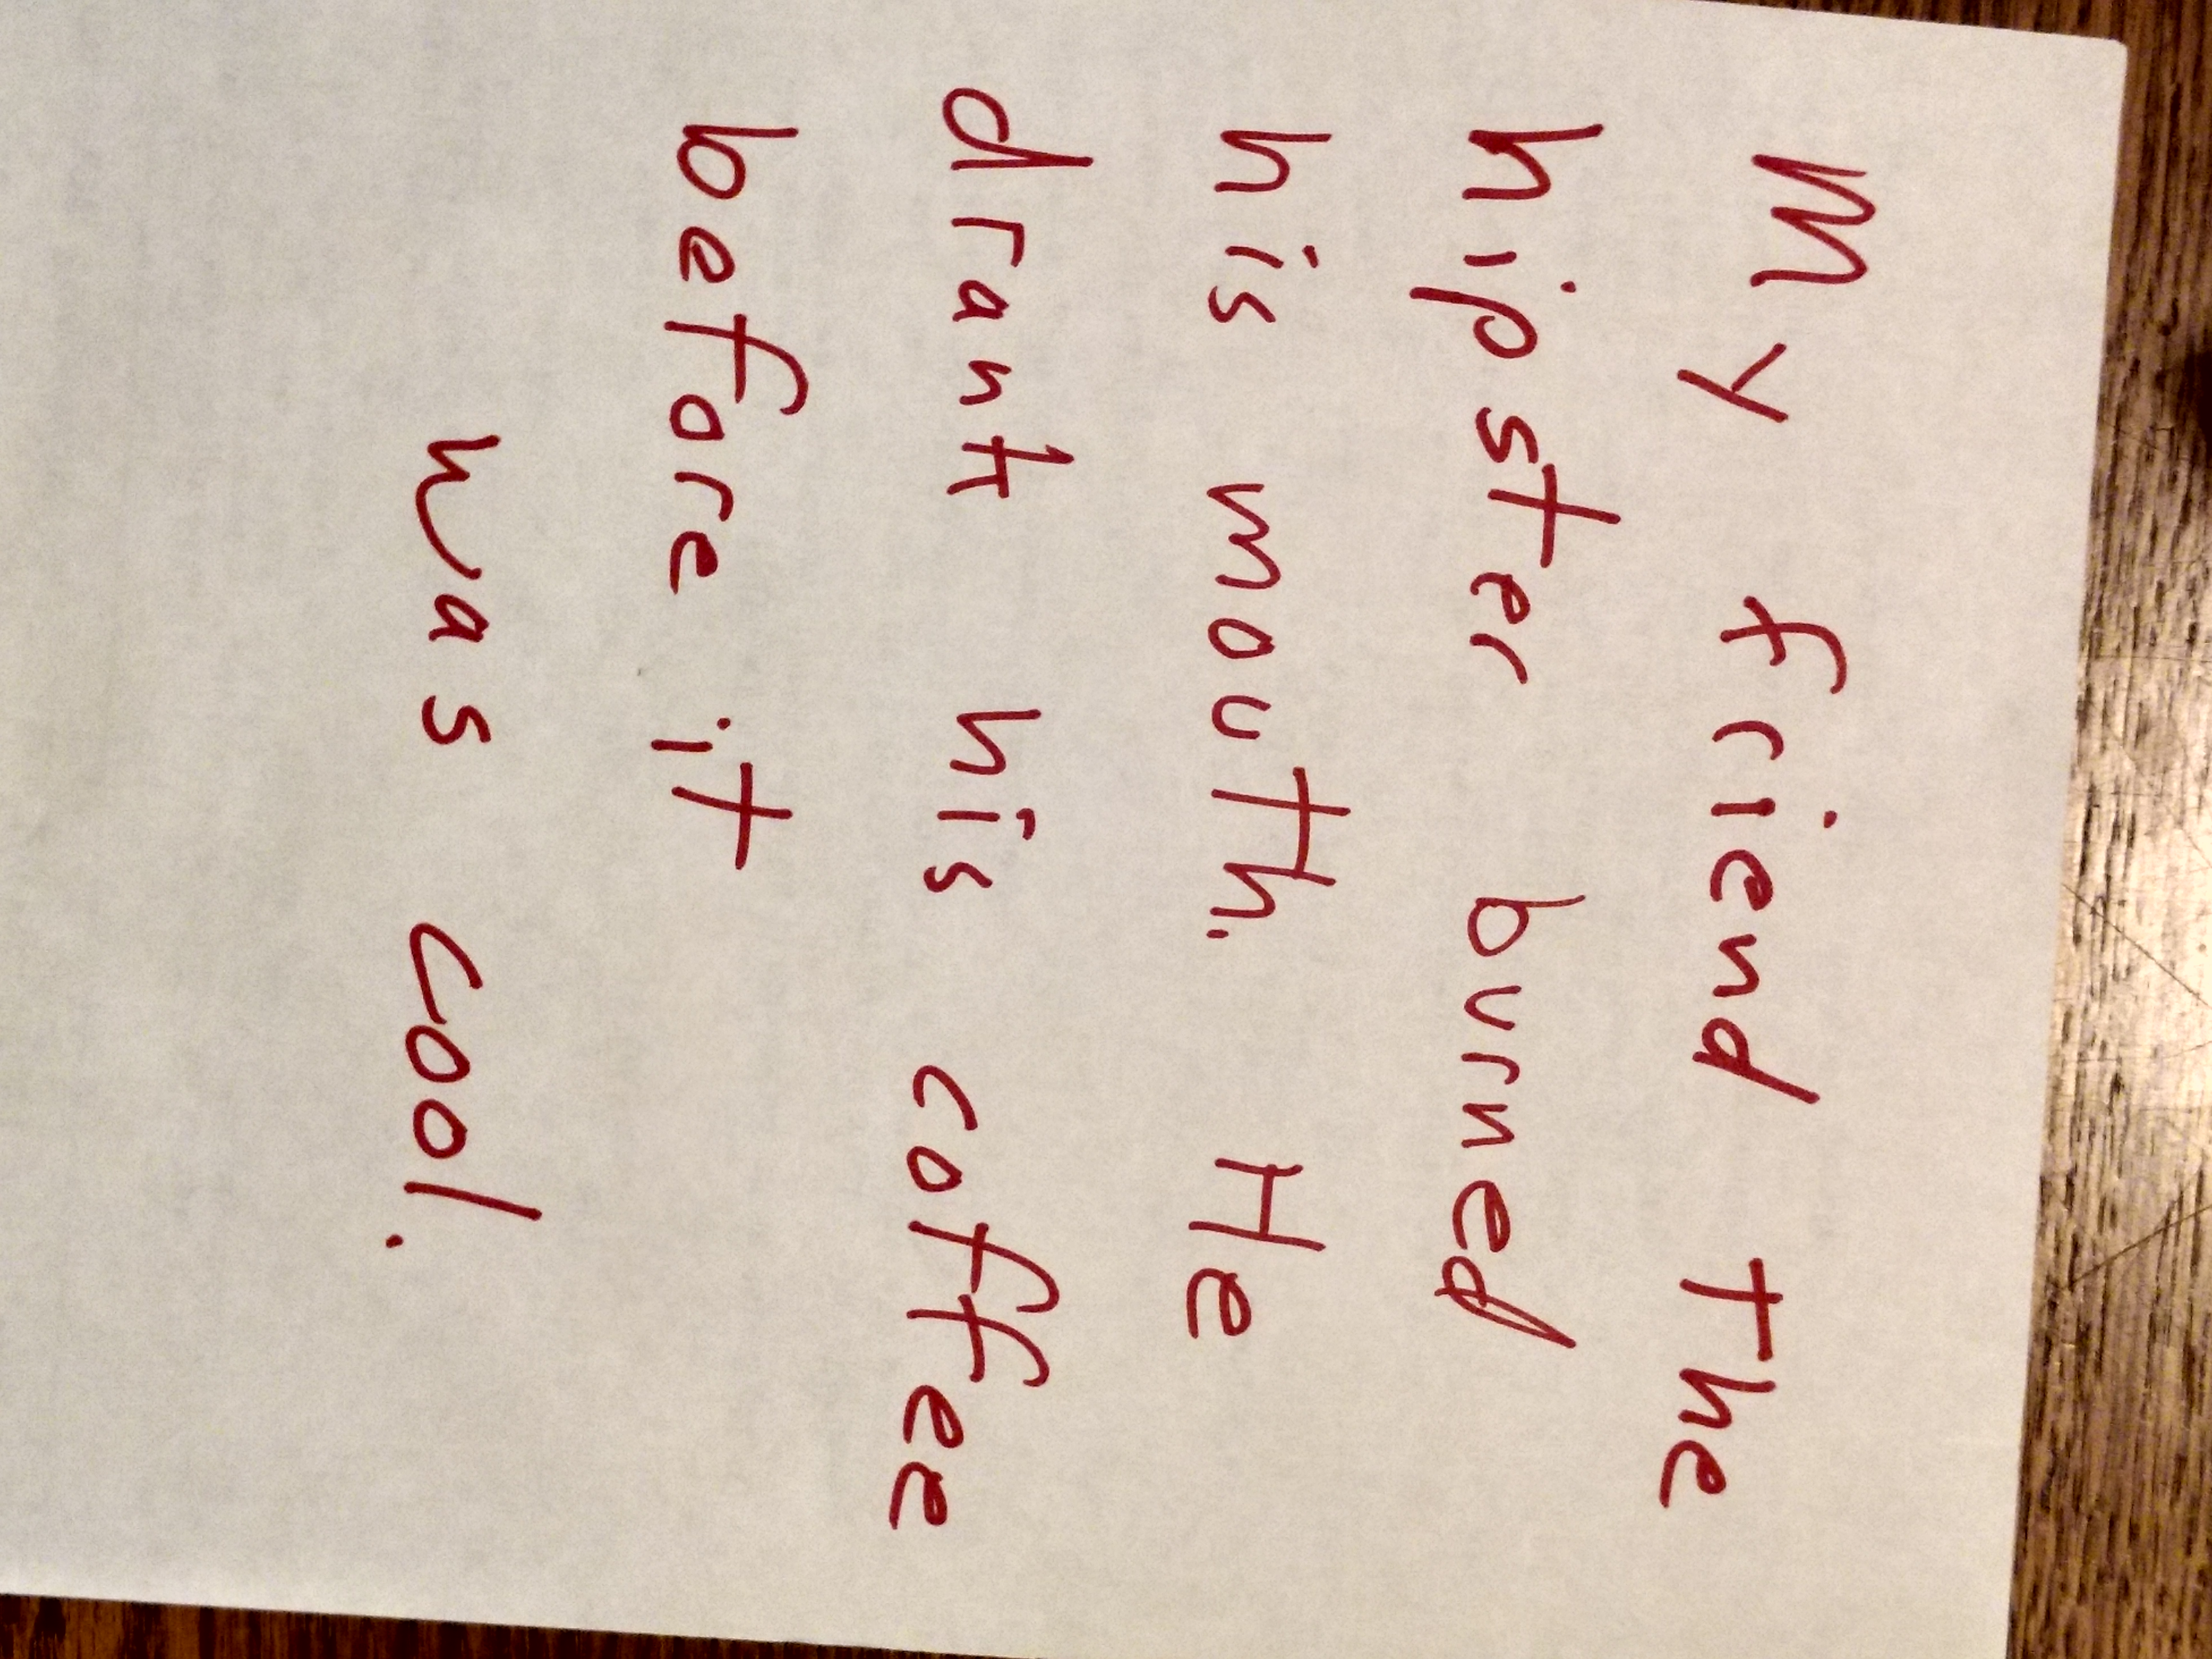 My friend the
hipster burned
his mouth. He
drank his coffee
before it
was cool.